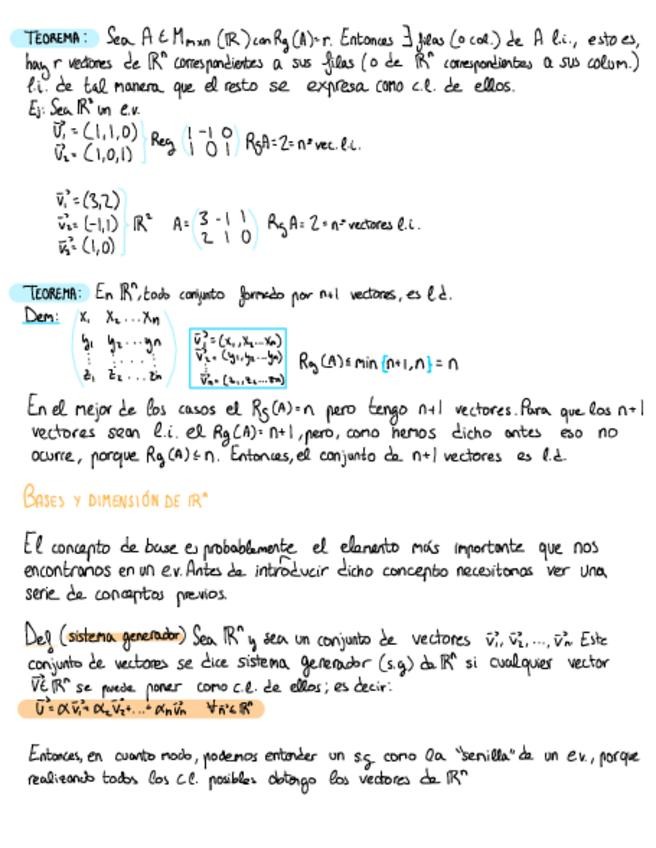 TEOREMA: Sea A ∈ Mmxn (ℝ) con Rg(A)=r. Entonces ∃ filas (o col.) de A l.i., esto es,
hay r vectores de ℝⁿ correspondientes a sus filas (o de ℝⁿ correspondientes a sus colum.)
l.i. de tal manera que el resto se expresa como c.l. de ellos.
Ej: Sea ℝ³ un e.v.
v⃗₁ = (1,1,0)
v⃗₂ = (1,0,1)
Reg (1 -1 0
1 0 1) RgA=2=nº vec. l.i.
v⃗₁ = (3,2)
v⃗₂ = (-1,1) ℝ² A = (3 -1 1
2 1 0) RgA = 2 = nº vectores l.i.
v⃗₃ = (1,0)
TEOREMA: En ℝⁿ, todo conjunto formado por n+1 vectores, es l.d.
Dem: x₁ x₂ ... xn
y₁ y₂ ... yn
⋮ ⋮
z₁ z₂ ... zn
v⃗₁ = (x₁, x₂ ... xn)
v⃗₂ = (y₁, y₂ ... yn)
⋮
v⃗n = (z₁, z₂ ... zn)
Rg(A) ≤ min {n+1, n} = n
En el mejor de los casos el Rg(A)=n pero tengo n+1 vectores. Para que los n+1
vectores sean l.i. el Rg(A)= n+1, pero, como hemos dicho antes eso no
ocurre, porque Rg(A) ≤ n. Entonces, el conjunto de n+1 vectores es l.d.
BASES Y DIMENSIÓN DE ℝⁿ
El concepto de base es probablemente el elemento más importante que nos
encontramos en un e.v. Antes de introducir dicho concepto necesitamos ver una
serie de conceptos previos.
Def (sistema generador) Sea ℝⁿ y sea un conjunto de vectores v⃗₁, v⃗₂, ..., v⃗n Este
conjunto de vectores se dice sistema generador (s.g) de ℝⁿ si cualquier vector
v⃗ ∈ ℝⁿ se puede poner como c.l. de ellos; es decir:
v⃗ = αv⃗₁ + α₂v⃗₂ + ... + αnv⃗n ∀v⃗ ∈ ℝⁿ
Entonces, en cuanto modo, podemos entender un s.g. como la "semilla" de un e.v., porque
realizando todos los c.l. posibles obtengo los vectores de ℝⁿ